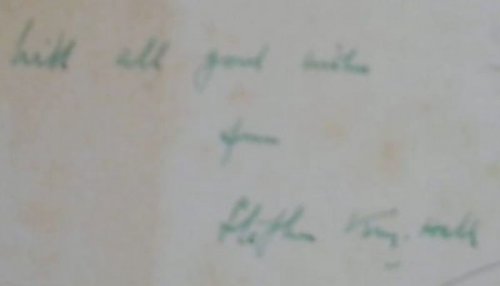 With all good wishes
from
Stephen King-Hall